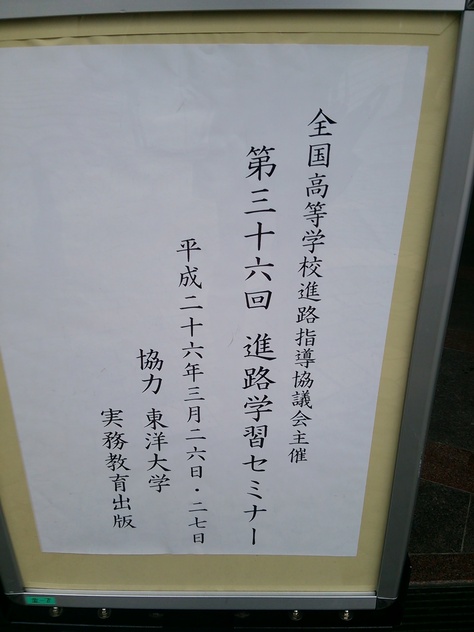 全国高等学校進路指導協議会主催
第三十六回 進路学習セミナー
平成二十六年三月二六日・二七日
協力 東洋大学
実務教育出版